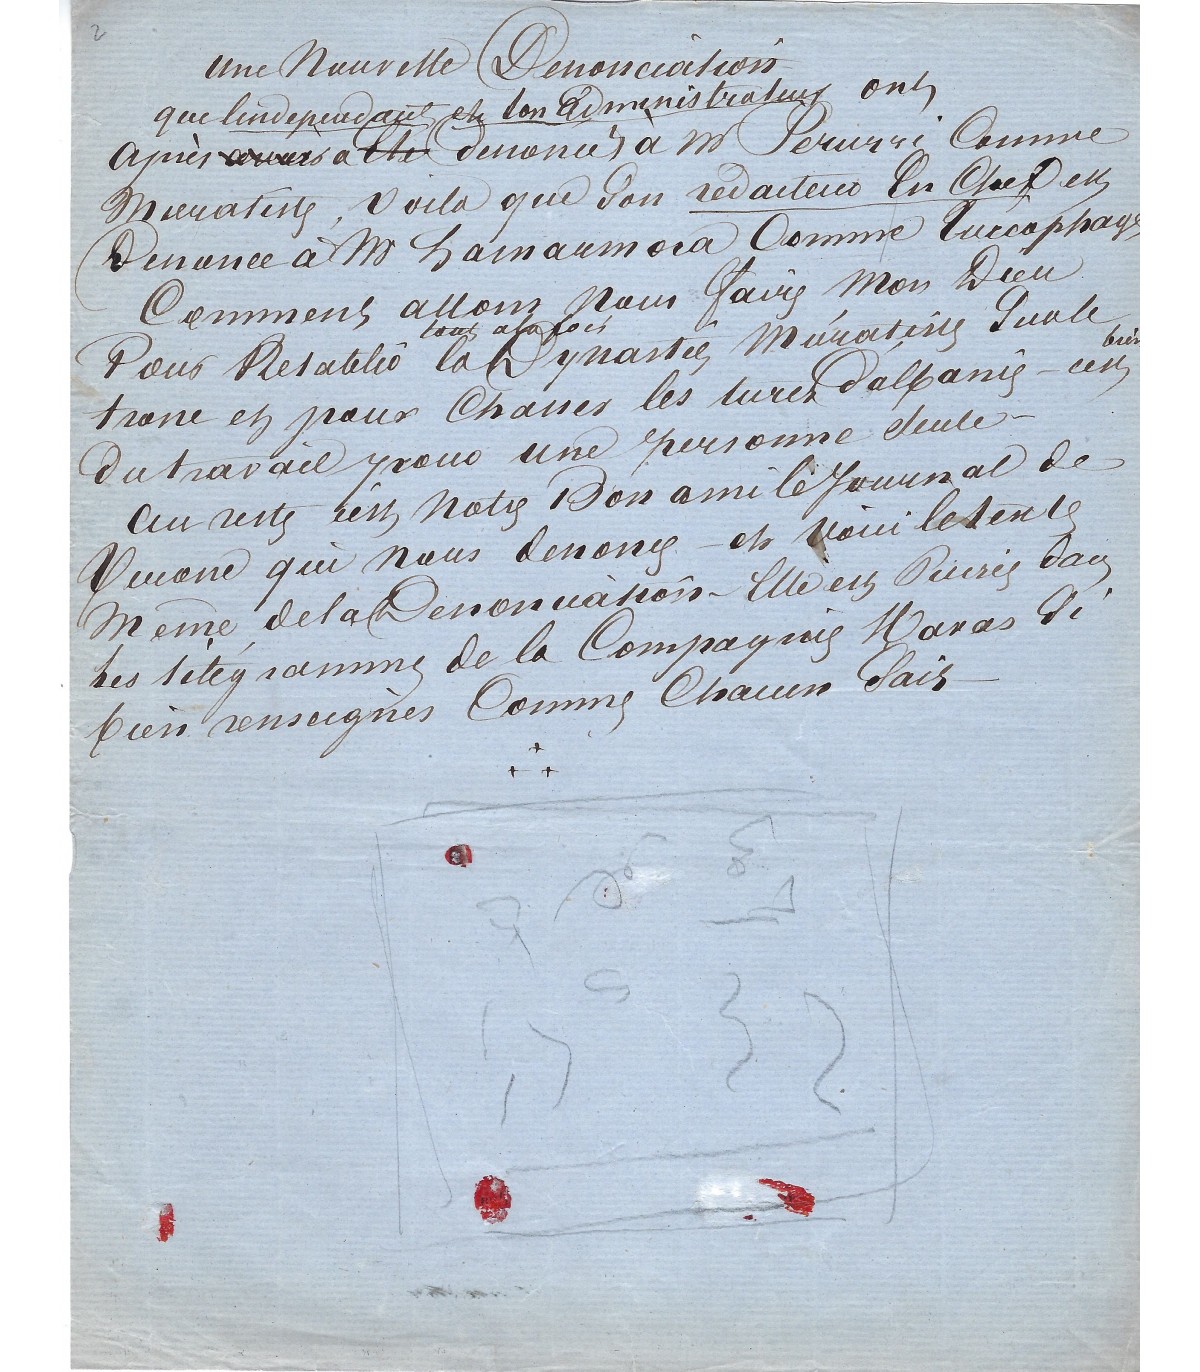 2
Une Nouvelle Denonciation
que lindependant et son Administrateur ont
Après avoir a été denoncés à Mr Peruzzi Comme
Muratiste, Voila que Son redacteur En Chef est
Denoncé à Mr Lamarmora Comme Turcophage
Comment allons nous faire Mon Dieu
tout a la fois
Pour Retablir la Dynastie Muratiste Sur le
bien
trone et pour Chasser les turcs d'albanie – cest
du travail pour une personne Seule –
Au reste cest Notre Bon ami le Journal de
Verone qui nous denonce – et voici le texte
Même de la Denonciation – Elle est Puisée dans
Les télégrammes de la Compagnie Havas Si
bien renseignés Comme Chacun Sait –